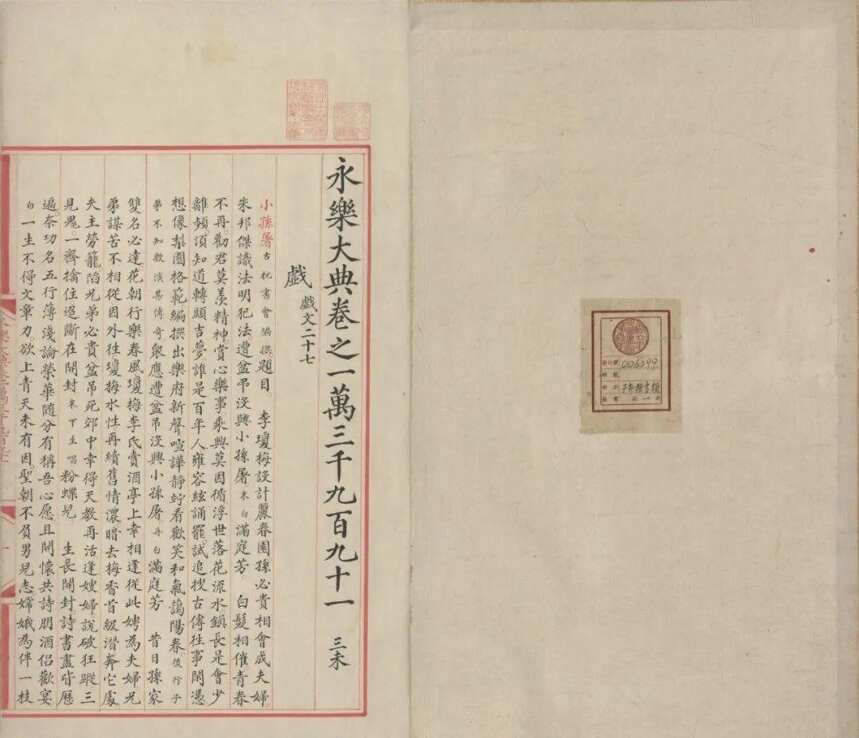 永樂大典卷之一萬三千九百九十一 三未
戲 戲文二十七
小孫屠 古杭書會編撰 題目 李瓊梅設計麗春園 孫必貴相會成夫婦
朱邦傑識法明犯法 遭盆吊沒興小孫屠 末白 滿庭芳 白髮相催青春
不再勸君莫羨精神賞心樂事乘興莫因循浮世落花流水鎮長是會少
離頻須知道轉頭吉夢誰是百年人雍容絃誦罷試追搜古傳往事閒憑
想像梨園格範編撰出樂府新聲喧譁靜竚看歡笑和氣藹陽春 後行子
弟不知敷演甚傳奇 衆應 遭盆吊沒興小孫屠 再白 滿庭芳 昔日孫家
雙名必達花朝行樂春風瓊梅李氏賣酒亭上幸相逢從此娉為夫婦兄
弟謀苦不相從因外往瓊梅水性再續舊情濃暗去梅香首級潛奔它處
夫主勞籠陷兄弟必貴盆吊死郊中幸得天教再活逢嫂婦說破狂蹤三
見鬼一齊擒住迢斷在開封 末下 生唱 粉蝶兒 生長開封詩書盡皆歷
遍奈功名五行薄淺論榮華隨分有稱吾心愿且開懷共詩朋酒侶歡宴
白 一生不得文章力欲上青天未有因聖朝不負男兒志嫦娥為伴一枝
006299